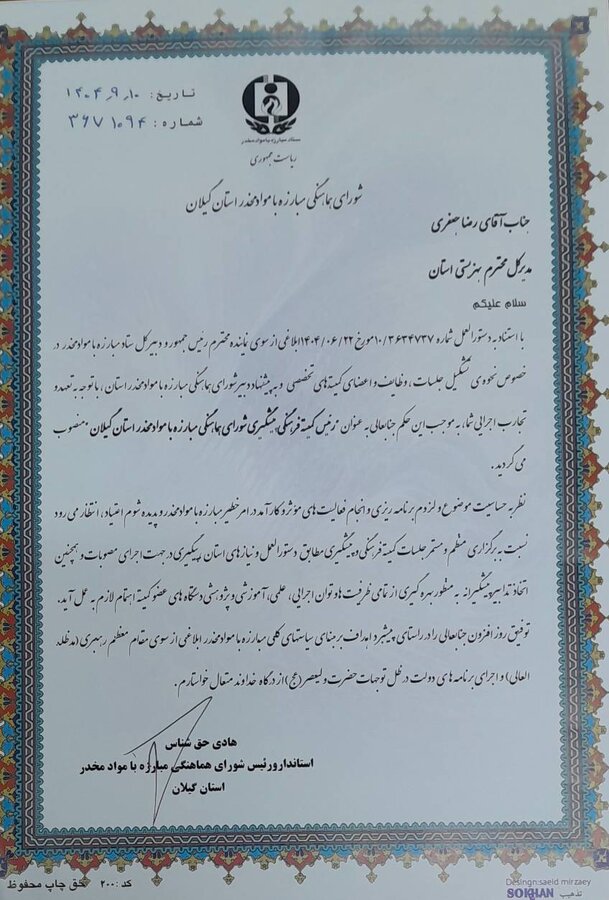 تاریخ: ۱۴۰۴٫۹٫۱۰
شماره: ۳۶۷۱۰۹۴
ستاد مبارزه با مواد مخدر
ریاست جمهوری
شورای هماهنگی مبارزه با مواد مخدر استان گیلان
جناب آقای رضا جعفری
مدیرکل محترم بهزیستی استان
سلام علیکم
با استناد به دستورالعمل شماره ۱۰/۳۶۳۴۷۳۷مورخ ۱۴۰۴/۰۶/۲۲ابلاغی از سوی نماینده محترم رئیس جمهور و دبیرکل ستاد مبارزه با مواد مخدر در
خصوص نحوه ی تشکیل جلسات، وظایف و اعضای کمیته های تخصصی و به پیشنهاد دبیر شورای هماهنگی مبارزه با مواد مخدر استان، با توجه به تعهد و
تجارب اجرایی شما، به موجب این حکم جنابعالی به عنوان "رئیس کمیته فرهنگی و پیشگیری شورای هماهنگی مبارزه با مواد مخدر استان گیلان" منصوب
می گردید.
نظر به حساسیت موضوع و لزوم برنامه ریزی و انجام فعالیت های مؤثر و کارآمد در امر خطیر مبارزه با مواد مخدر و پدیده شوم اعتیاد، انتظار می رود
نسبت به برگزاری منظم و مستمر جلسات کمیته فرهنگی و پیشگیری مطابق دستورالعمل و نیازهای استان، پیگیری در جهت اجرای مصوبات و همچنین
اتخاذ تدابیر پیشگیرانه به منظور بهره گیری از تمامی ظرفیت ها و توان اجرایی، علمی، آموزشی و پژوهشی دستگاه های عضو کمیته اهتمام لازم به عمل آید.
توفیق روز افزون جنابعالی را در راستای پیشبرد اهداف بر مبنای سیاستهای کلی مبارزه با مواد مخدر ابلاغی از سوی مقام معظم رهبری (مدظله
العالی) و اجرای برنامه های دولت در ظل توجهات حضرت ولیعصر (عج) از درگاه خداوند متعال خواستارم.
هادی حق شناس
استاندار و رئیس شورای هماهنگی مبارزه با مواد مخدر
استان گیلان
کد: ۲۰۰ حق چاپ محفوظ
Desingn:saeid mirzaey
تذهیب SOKHAN